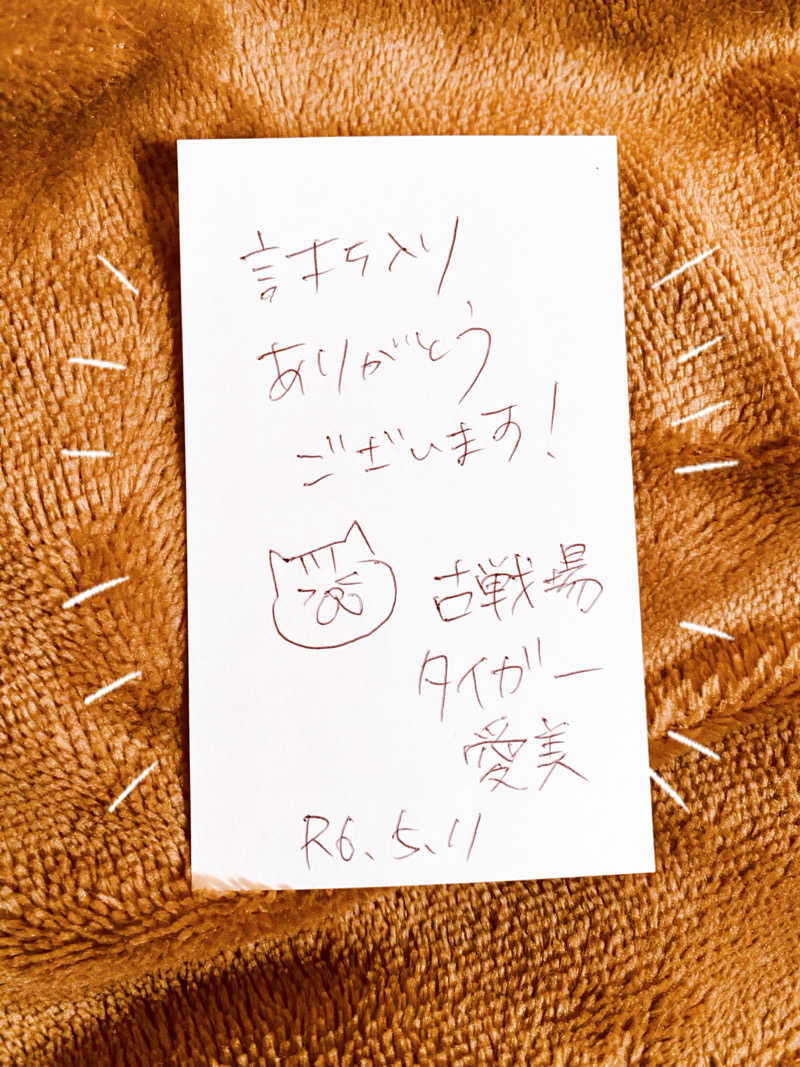 討ち入り
ありがとう
ございます!
古戦場
タイガー
愛美
R6.5.11